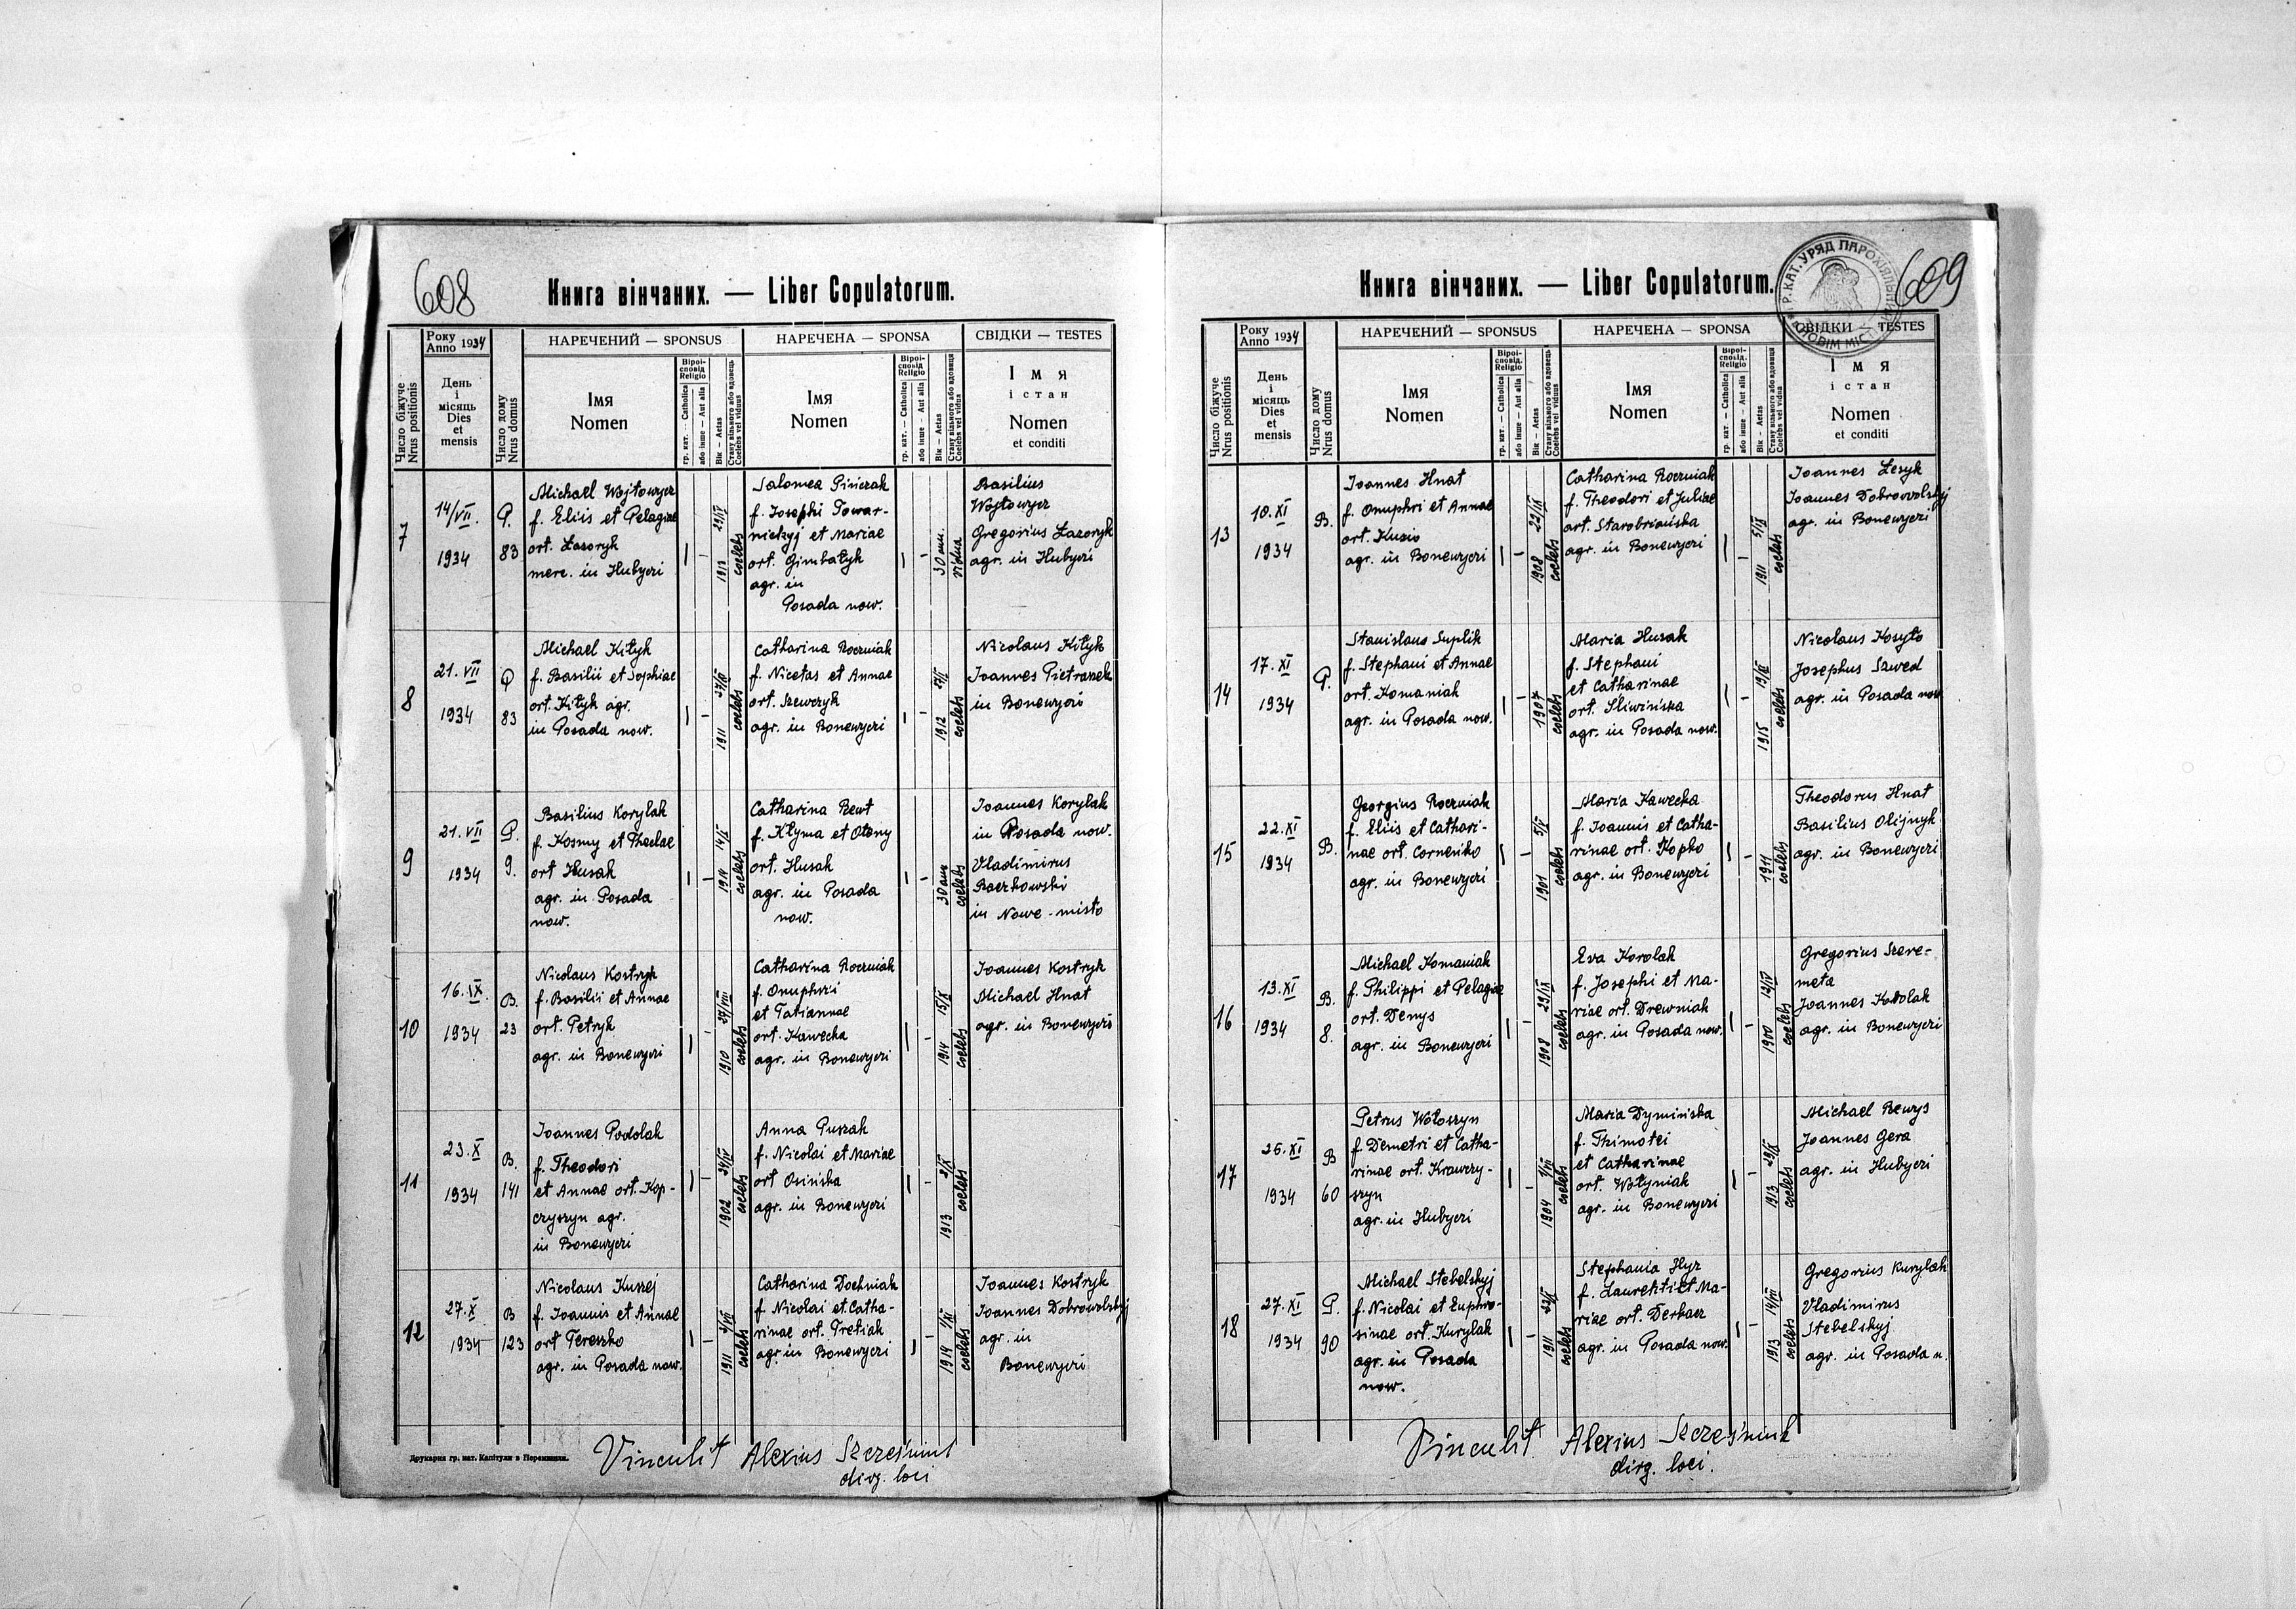 608
Книга вінчаних. — Liber Copulatorum.
Число біжуче
Nrus positionis
Року
Anno 1934
День
і
місяць
Dies
et
mensis
Число дому
Nrus domus
НАРЕЧЕНИЙ — SPONSUS
Імя
Nomen
Віроі-
сповід
Religio
гр. кат. — Catholica
або інше — Aut alia
Вік — Aetas
Стану вільного або вдовець
Coelebs vel viduus
НАРЕЧЕНА — SPONSA
Імя
Nomen
Віроі-
сповід
Religio
гр. кат. — Catholica
або інше — Aut alia
Вік — Aetas
Стану вільного або вдовиця
Coelebs vel vidua
СВІДКИ — TESTES
Імя
і стан
Nomen
et conditi
7
14/VII.
1934
P.
83
Michael Wojtowycz
f. Eliis et Pelagiae
ort. Łazoryk
merc. in Hubyczi
1913 29/IV
coelebs
Salomea Piniczak
f. Josephi Towar-
nickyj et Mariae
ort. Gimbatyk
agr. in
Posada now.
30 ann.
vidua
Basilius
Wojtowycz
Gregorius Łazoryk
agr. in Hubyczi
8
21. VII
1934
P
83
Michael Kityk
f. Basilii et Sophiae
ort. Kityk agr.
in Posada now.
1911
coelebs
Catharina Roczniak
f. Nicetas et Annae
ort. Szewczyk
agr. in Bonewyczi
1912
coelebs
Nicolaus Kityk
Joannes Pietraszek
in Bonewyczi
9
21. VII
1934
P.
9.
Basilius Korylak
f. Kosmy et Theclae
ort Husak
agr. in Posada
now.
1914 14/I
coelebs
Catharina Rewt
f. Kłyma et Oteny
ort. Husak
agr. in Posada
now.
30 ann
coelebs
Joannes Korylak
in Posada now.
Vladimirus
Baczkowski
in Nowe-misto
10
16. IX.
1934
B.
23
Nicolaus Kostryk
f. Basilii et Annae
ort. Petryk
agr. in Bonewyczi
1910 27/VIII
coelebs
Catharina Roczniak
f. Onuphrii
et Tatiannae
ort. Kawecka
agr. in Bonewyczi
1914 15/X
coelebs
Joannes Kostryk
Michael Hnat
agr. in Bonewyczi
11
23. X
1934
B.
141
Joannes Podolak
f. Theodori
et Annae ort. Kop-
czyszyn agr.
in Bonewyczi
1902 24/IV
coelebs
Anna Puszak
f. Nicolai et Mariae
ort Osińska
agr. in Bonewyczi
1913 2/X
coelebs
12
27. X
1934
B
123
Nicolaus Kuszej
f. Joannis et Annae
ort Tereszko
agr. in Posada now.
1911
coelebs
Catharina Dochniak
f. Nicolai et Catha-
rinae ort. Tretiak
agr in Bonewyczi
1914
coelebs
Joannes Kostryk
Joannes Dobrowolskyj
agr. in
Bonewyczi
Друкарня гр. кат. Капітули в Перемишли.
Vinculit Alexius Szcześniuk
dirg. loci
609
ГР. КАТ. УРЯД ПАРОХІЯЛЬНИЙ
В НОВІМ МІСТІ
Книга вінчаних. — Liber Copulatorum.
Число біжуче
Nrus positionis
Року
Anno 1934
День
і
місяць
Dies
et
mensis
Число дому
Nrus domus
НАРЕЧЕНИЙ — SPONSUS
Імя
Nomen
Віроі-
сповід.
Religio
гр. кат. — Catholica
або інше — Aut alia
Вік — Aetas
Стану вільного або вдовець
Coelebs vel viduus
НАРЕЧЕНА — SPONSA
Імя
Nomen
Віроі-
сповід.
Religio
гр. кат. — Catholica
або інше — Aut alia
Вік — Aetas
Стану вільного або вдовиця
Coelebs vel vidua
СВІДКИ — TESTES
Імя
і стан
Nomen
et conditi
13
10. XI
1934
B.
Joannes Hnat
f. Onuphri et Annae
ort. Kusio
agr. in Bonewyczi
1908 22/IX
coelebs
Catharina Roczniak
f. Theodori et Juliae
ort. Starobriańska
agr. in Bonewyczi
1911 5/IX
coelebs
Joannes Łesyk
Joannes Dobrowolskyj
agr. in Bonewyczi
14
17. XI
1934
P.
Stanislaus Suplik
f. Stephani et Annae
ort. Komaniak
agr. in Posada now.
1907
coelebs
Maria Husak
f. Stephani
et Catharinae
ort. Sliwińska
agr. in Posada now.
1915
coelebs
Nicolaus Kosyło
Josephus Szwed
agr. in Posada now
15
22. XI
1934
B.
Georgius Roczniak
f. Eliis et Cathari-
nae ort. Corneńko
agr. in Bonewyczi
1901 5/V
coelebs
Maria Kawecka
f. Joannis et Catha-
rinae ort. Kopko
agr. in Bonewyczi
1911
coelebs
Theodorus Hnat
Basilius Olijnyk
agr. in Bonewyczi
16
13. XI
1934
B.
8.
Michael Komaniak
f. Philippi et Pelagiae
ort. Denys
agr. in Bonewyczi
1908 29/IX
coelebs
Eva Korolak
f. Josephi et Ma-
riae ort. Drewniak
agr. in Posada now.
1900 12/IV
coelebs
Gregorius Szere-
meta
Joannes Korolak
agr. in Bonewyczi
17
25. XI
1934
B
60
Petrus Wołoszyn
f. Demetri et Catha-
rinae ort. Krawczy-
szyn
agr. in Hubyczi
1904
coelebs
Maria Dymińska
f. Thimotei
et Catharinae
ort. Wołyniak
agr. in Bonewyczi
1913 29/X
coelebs
Michael Rewys
Joannes Gera
agr. in Hubyczi
18
27. XI
1934
P.
90
Michael Stebelskyj
f. Nicolai et Euphro-
sinae ort. Kurylak
agr. in Posada
now.
1911
coelebs
Stephania Hyz
f. Laurentii et Ma-
riae ort. Derkacz
agr. in Posada now.
1913
coelebs
Gregorius Kurylak
Vladimirus
Stebelskyj
agr. in Posada n.
Vinculit Alexius Szcześniuk
dirg. loci.